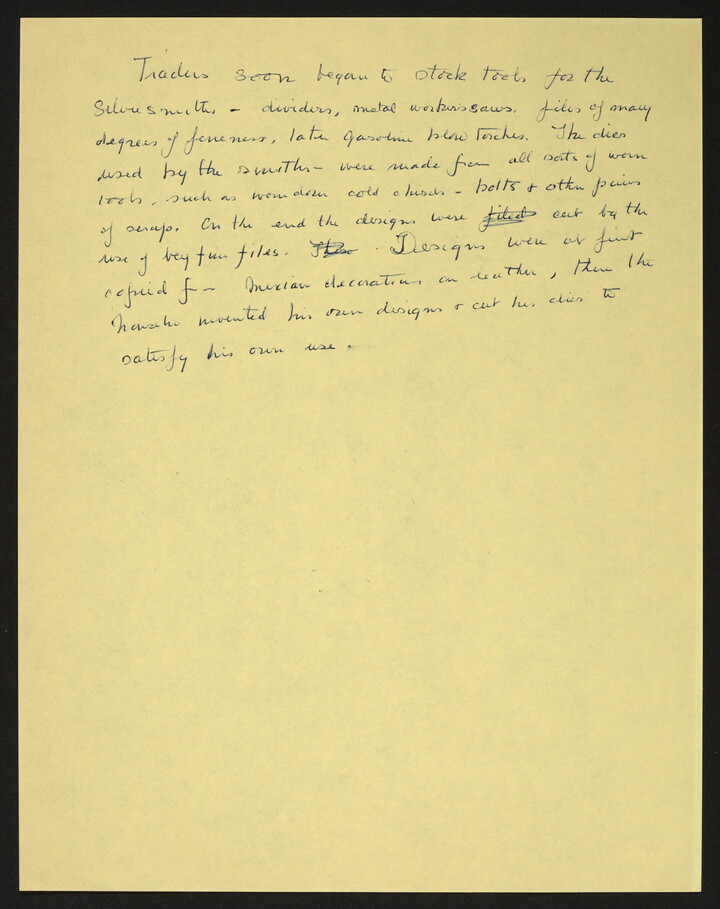 Traders soon began to stock tools for the
Silversmiths – dividers, metal workers saws, files of many
degrees of fineness, later gasoline blow torches. The dies
used by the smiths – were made from all sorts of worn
tools, such as worn down cold chisels – bolts & other pieces
of scrap. On the end the designs were filed cut by the
use of very fine files. Designs were at first
copied from Mexican decorations on leather, then the
Navaho invented his own designs & cut his dies to
satisfy his own use.